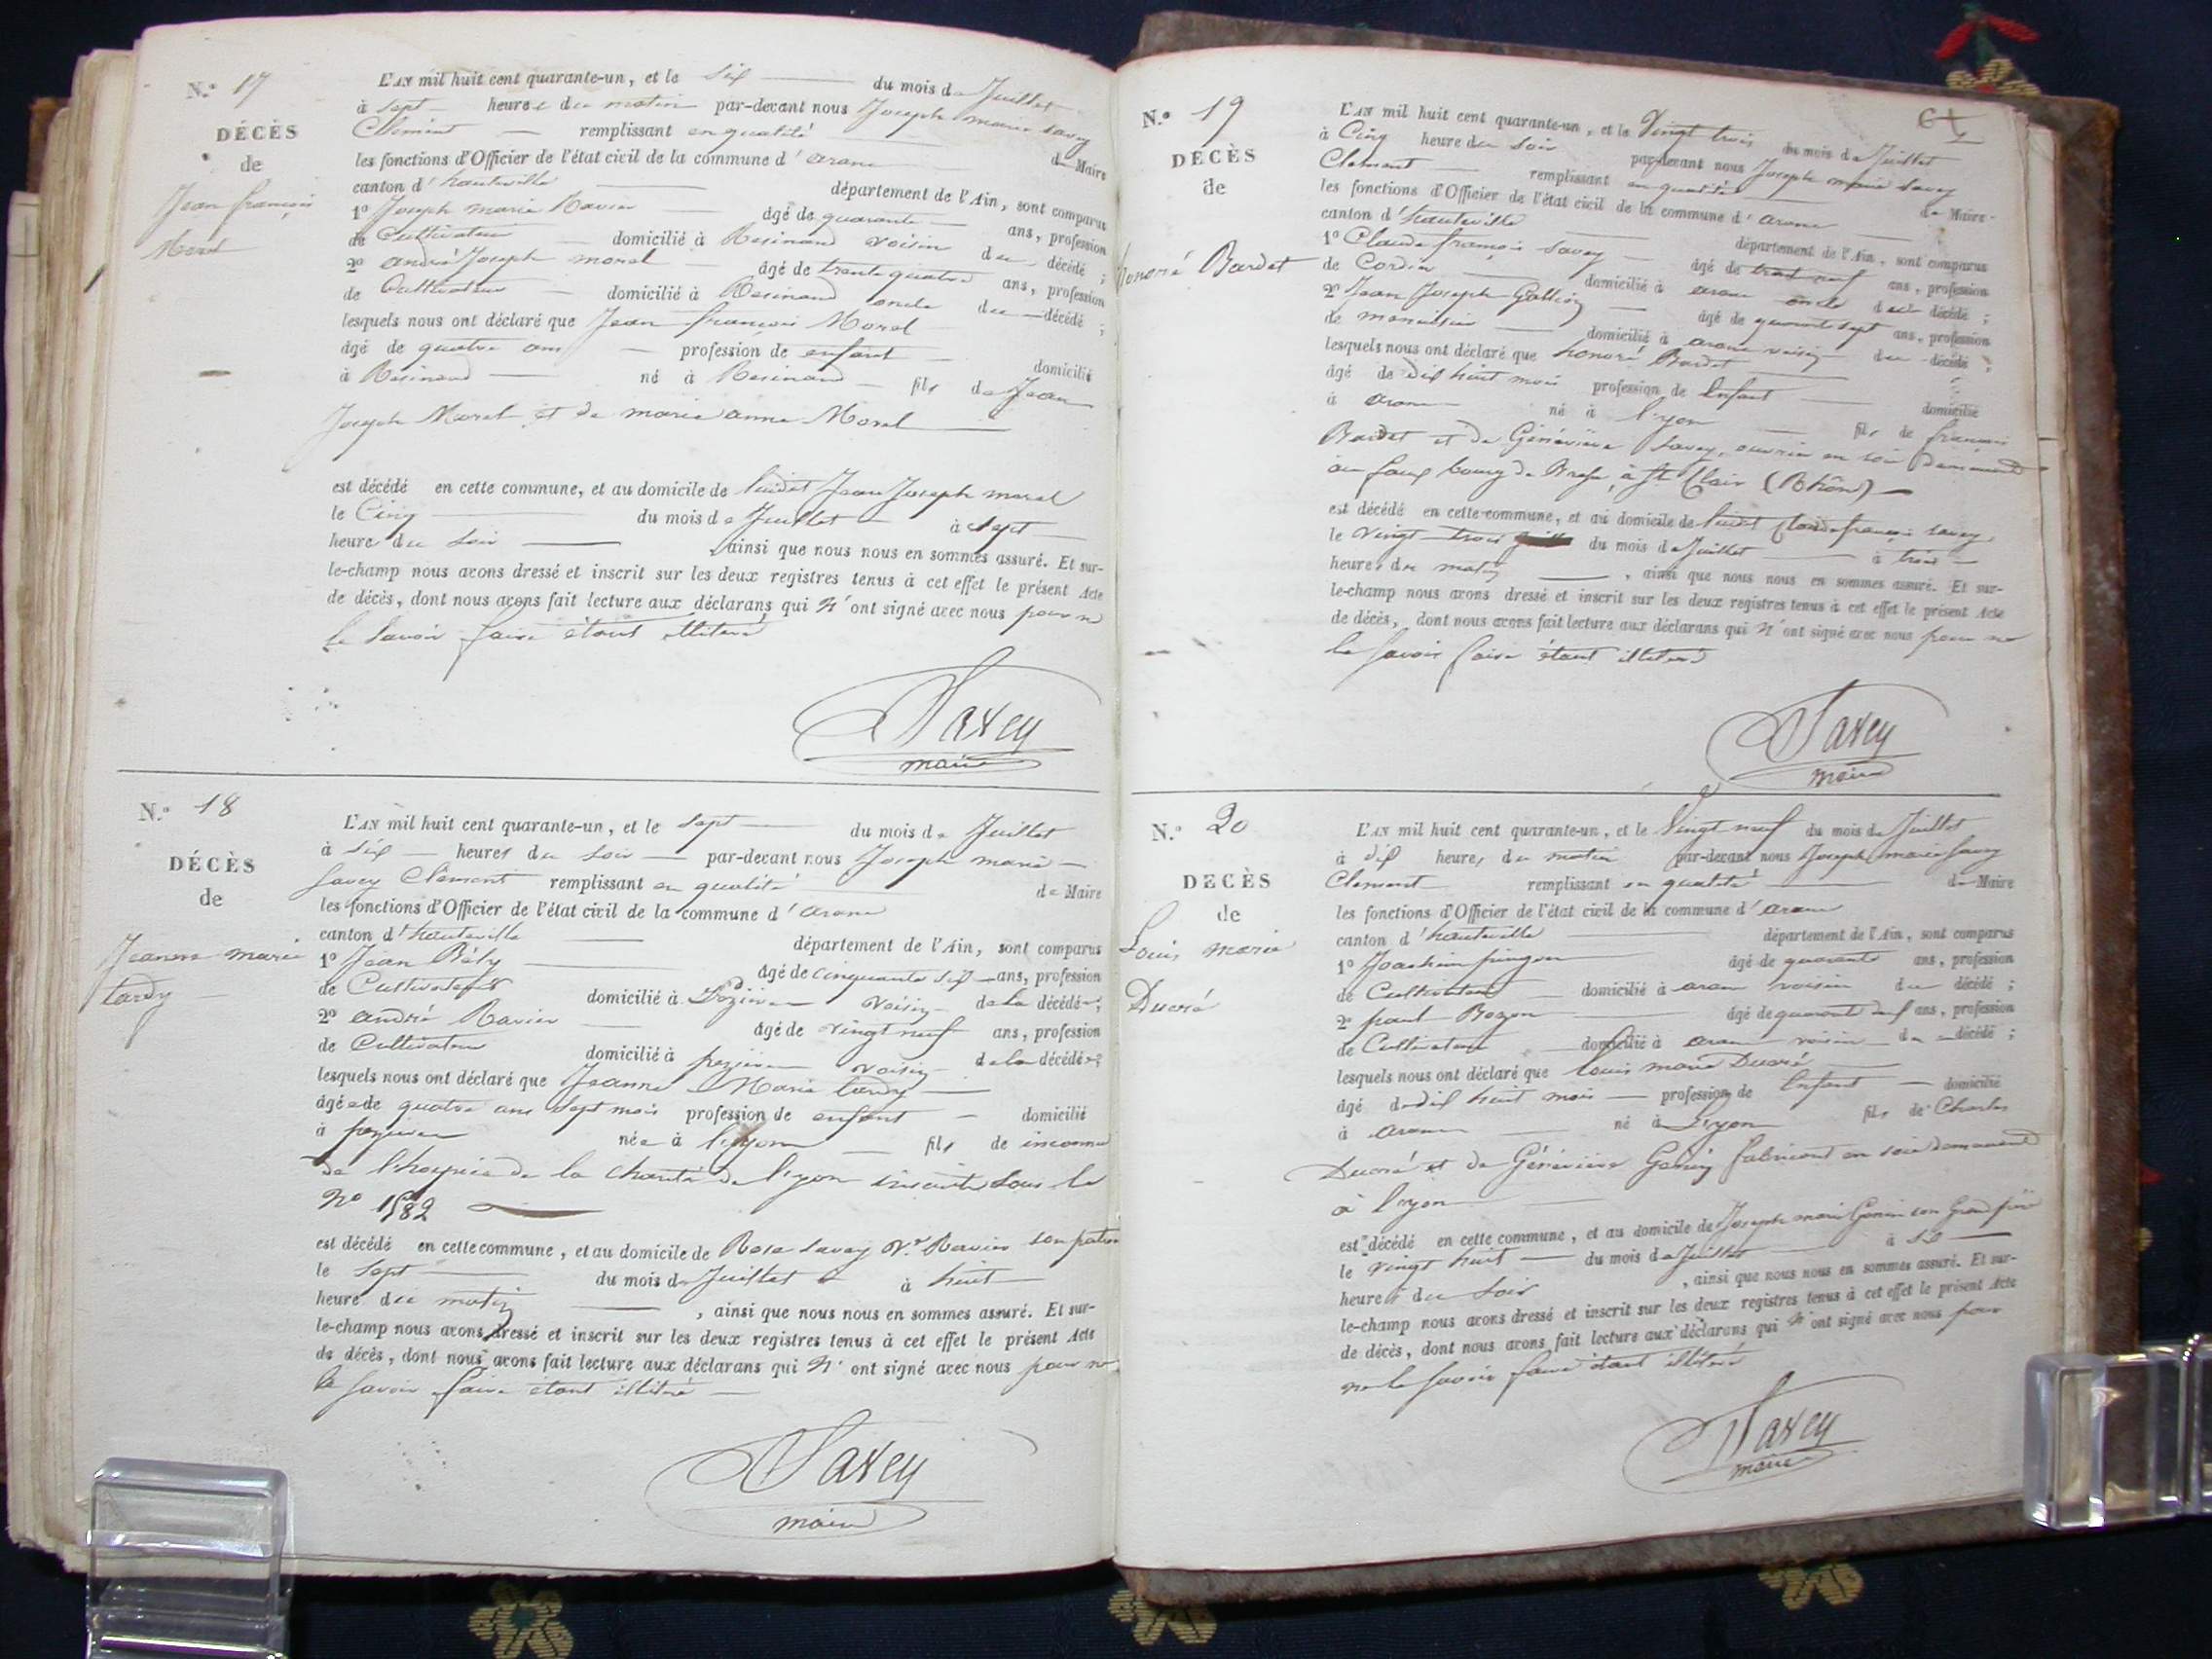 N.° 17
DÉCÈS
de
Jean françois
Morel
L'AN mil huit cent quarante-un, et le six du mois de Juillet
à sept heures du matin par-devant nous Joseph marie savey
Clément remplissant en qualité de Maire
les fonctions d'Officier de l'état civil de la commune d'arane
canton d'hauteville département de l'Ain, sont comparus
1° Joseph marie Ravier âgé de quarante ans, profession
de Cultivateur domicilié à Resinand voisin du décédé;
2° andré Joseph morel âgé de trente quatre ans, profession
de Cultivateur domicilié à Resinand oncle du décédé;
lesquels nous ont déclaré que Jean françois Morel
âgé de quatre ans profession de enfant domicilié
à Resinand né à Resinand fils de Jean
Joseph Morel et de marie anne Morel
est décédé en cette commune, et au domicile de Jean Joseph morel
le Cinq du mois de Juillet à sept
heure du soir ainsi que nous nous en sommes assuré. Et sur-
le-champ nous avons dressé et inscrit sur les deux registres tenus à cet effet le présent Acte
de décès, dont nous avons fait lecture aux déclarans qui n'ont signé avec nous pour ne
le savoir faire étant illiteré
Savey
maire
N.° 18
DÉCÈS
de
Jeanne marie
tardy
L'AN mil huit cent quarante-un, et le sept du mois de Juillet
à six heures du soir par-devant nous Joseph marie
savey Clément remplissant en qualité de Maire
les fonctions d'Officier de l'état civil de la commune d'arane
canton d'hauteville département de l'Ain, sont comparus
1° Jean Bély âgé de cinquante six ans, profession
de Cultivateur domicilié à voisin de la décédée;
2° andré Ravier âgé de vingt neuf ans, profession
de Cultivateur domicilié à voisin de la décédée;
lesquels nous ont déclaré que Jeanne Marie tardy
âgée de quatre ans sept mois profession de enfant domicilié
à née à Lyon fils de inconnu
de l'hospice de la charité de Lyon inscrite sous le
N° 1582
est décédé en cette commune, et au domicile de Rose savey V.e Ravier son
le sept du mois de Juillet à huit
heure du matin, ainsi que nous nous en sommes assuré. Et sur-
le-champ nous avons dressé et inscrit sur les deux registres tenus à cet effet le présent Acte
de décès, dont nous avons fait lecture aux déclarans qui n'ont signé avec nous pour ne
le savoir faire étant illiteré
Savey
maire
N.° 19
DÉCÈS
de
honoré Bardet
L'AN mil huit cent quarante-un, et le Vingt trois du mois de Juillet
à Cinq heure du soir par-devant nous Joseph marie savey
Clement remplissant en qualité de Maire
les fonctions d'Officier de l'état civil de la commune d'arane
canton d'hauteville département de l'Ain, sont comparus
1° Claude françois savey âgé de trente neuf ans, profession
de domicilié à arane oncle du décédé;
2° Jean Joseph âgé de quarante sept ans, profession
de menuisier domicilié à arane voisin du décédé;
lesquels nous ont déclaré que honoré Bardet
âgé de dix huit mois profession de Enfant domicilié
à arane né à Lyon fils de françois
Bardet et de Généviève savey, ouvrier en soie demeurant
au faux bourg de à St Clair (Rhône)
est décédé en cette commune, et au domicile de Claude françois savey
le vingt trois du mois de Juillet à trois
heures du matin, ainsi que nous nous en sommes assuré. Et sur-
le-champ nous avons dressé et inscrit sur les deux registres tenus à cet effet le présent Acte
de décès, dont nous avons fait lecture aux déclarans qui n'ont signé avec nous pour ne
le savoir faire étant illiteré
Savey
maire
N.° 20
DECÈS
de
Louis marie
Ducré
L'AN mil huit cent quarante-un, et le Vingt neuf du mois de Juillet
à dix heures du matin par-devant nous Joseph marie savey
Clement remplissant en qualité de Maire
les fonctions d'Officier de l'état civil de la commune d'arane
canton d'hauteville département de l'Ain, sont comparus
1° Joachim âgé de quarante ans, profession
de Cultivateur domicilié à arane voisin du décédé;
2° paul Bozon âgé de quarante ans, profession
de Cultivateur domicilié à arane voisin du décédé;
lesquels nous ont déclaré que louis marie Ducré
âgé de dix huit mois profession de Enfant domicilié
à arane né à Lyon fils de Charles
Ducré et de Généviève Genin fabricant en soie demeurant
à Lyon
est décédé en cette commune, et au domicile de Joseph marie Genin son Grand père
le vingt huit du mois de Juillet à six
heures du soir, ainsi que nous nous en sommes assuré. Et sur-
le-champ nous avons dressé et inscrit sur les deux registres tenus à cet effet le présent Acte
de décès, dont nous avons fait lecture aux déclarans qui n'ont signé avec nous pour
ne le savoir faire étant illiteré
Savey
maire